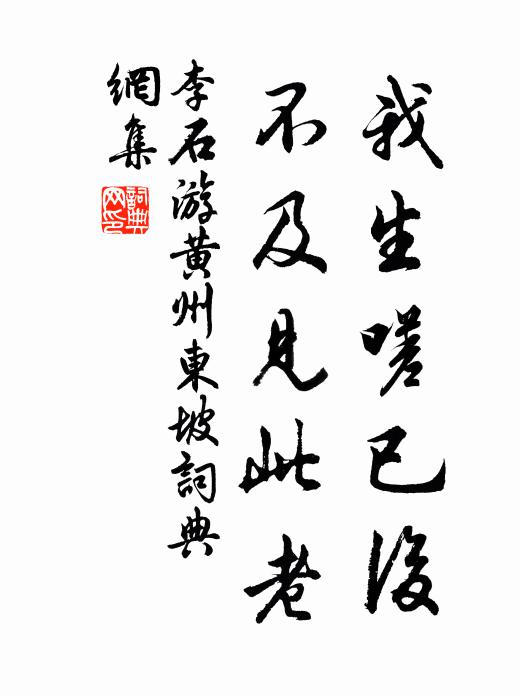 我生嗟已後
不及見此老
李石游黃州東坡詞典
網集
詞典網印